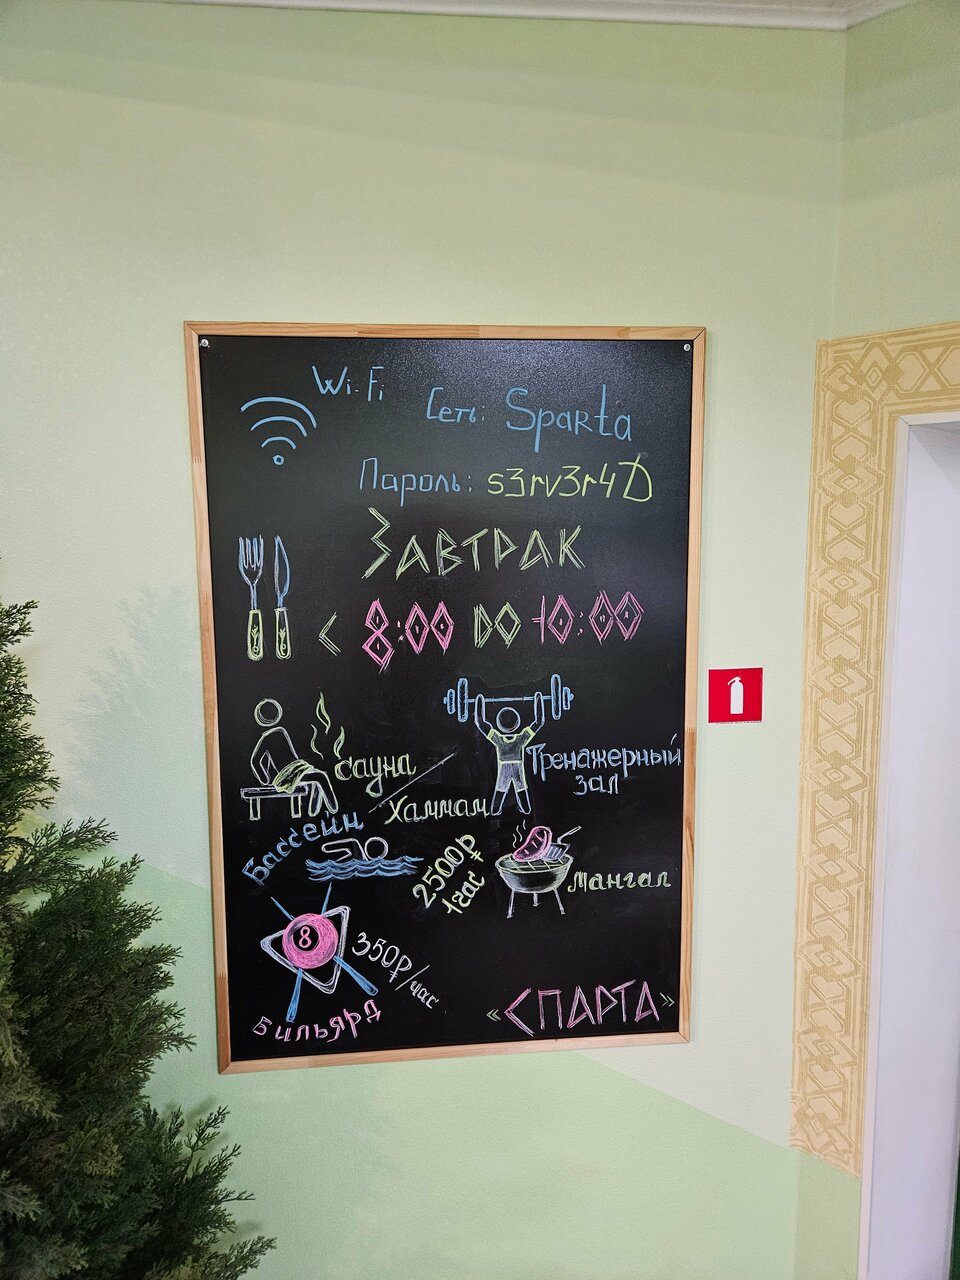 Wi-Fi
Сеть: Sparta
Пароль: s3rv3r4D
Завтрак
с 8:00 до 10:00
сауна /
хаммам
Тренажерный
зал
Бассейн
2500₽
1час
мангал
8
350₽/час
Бильярд
«СПАРТА»